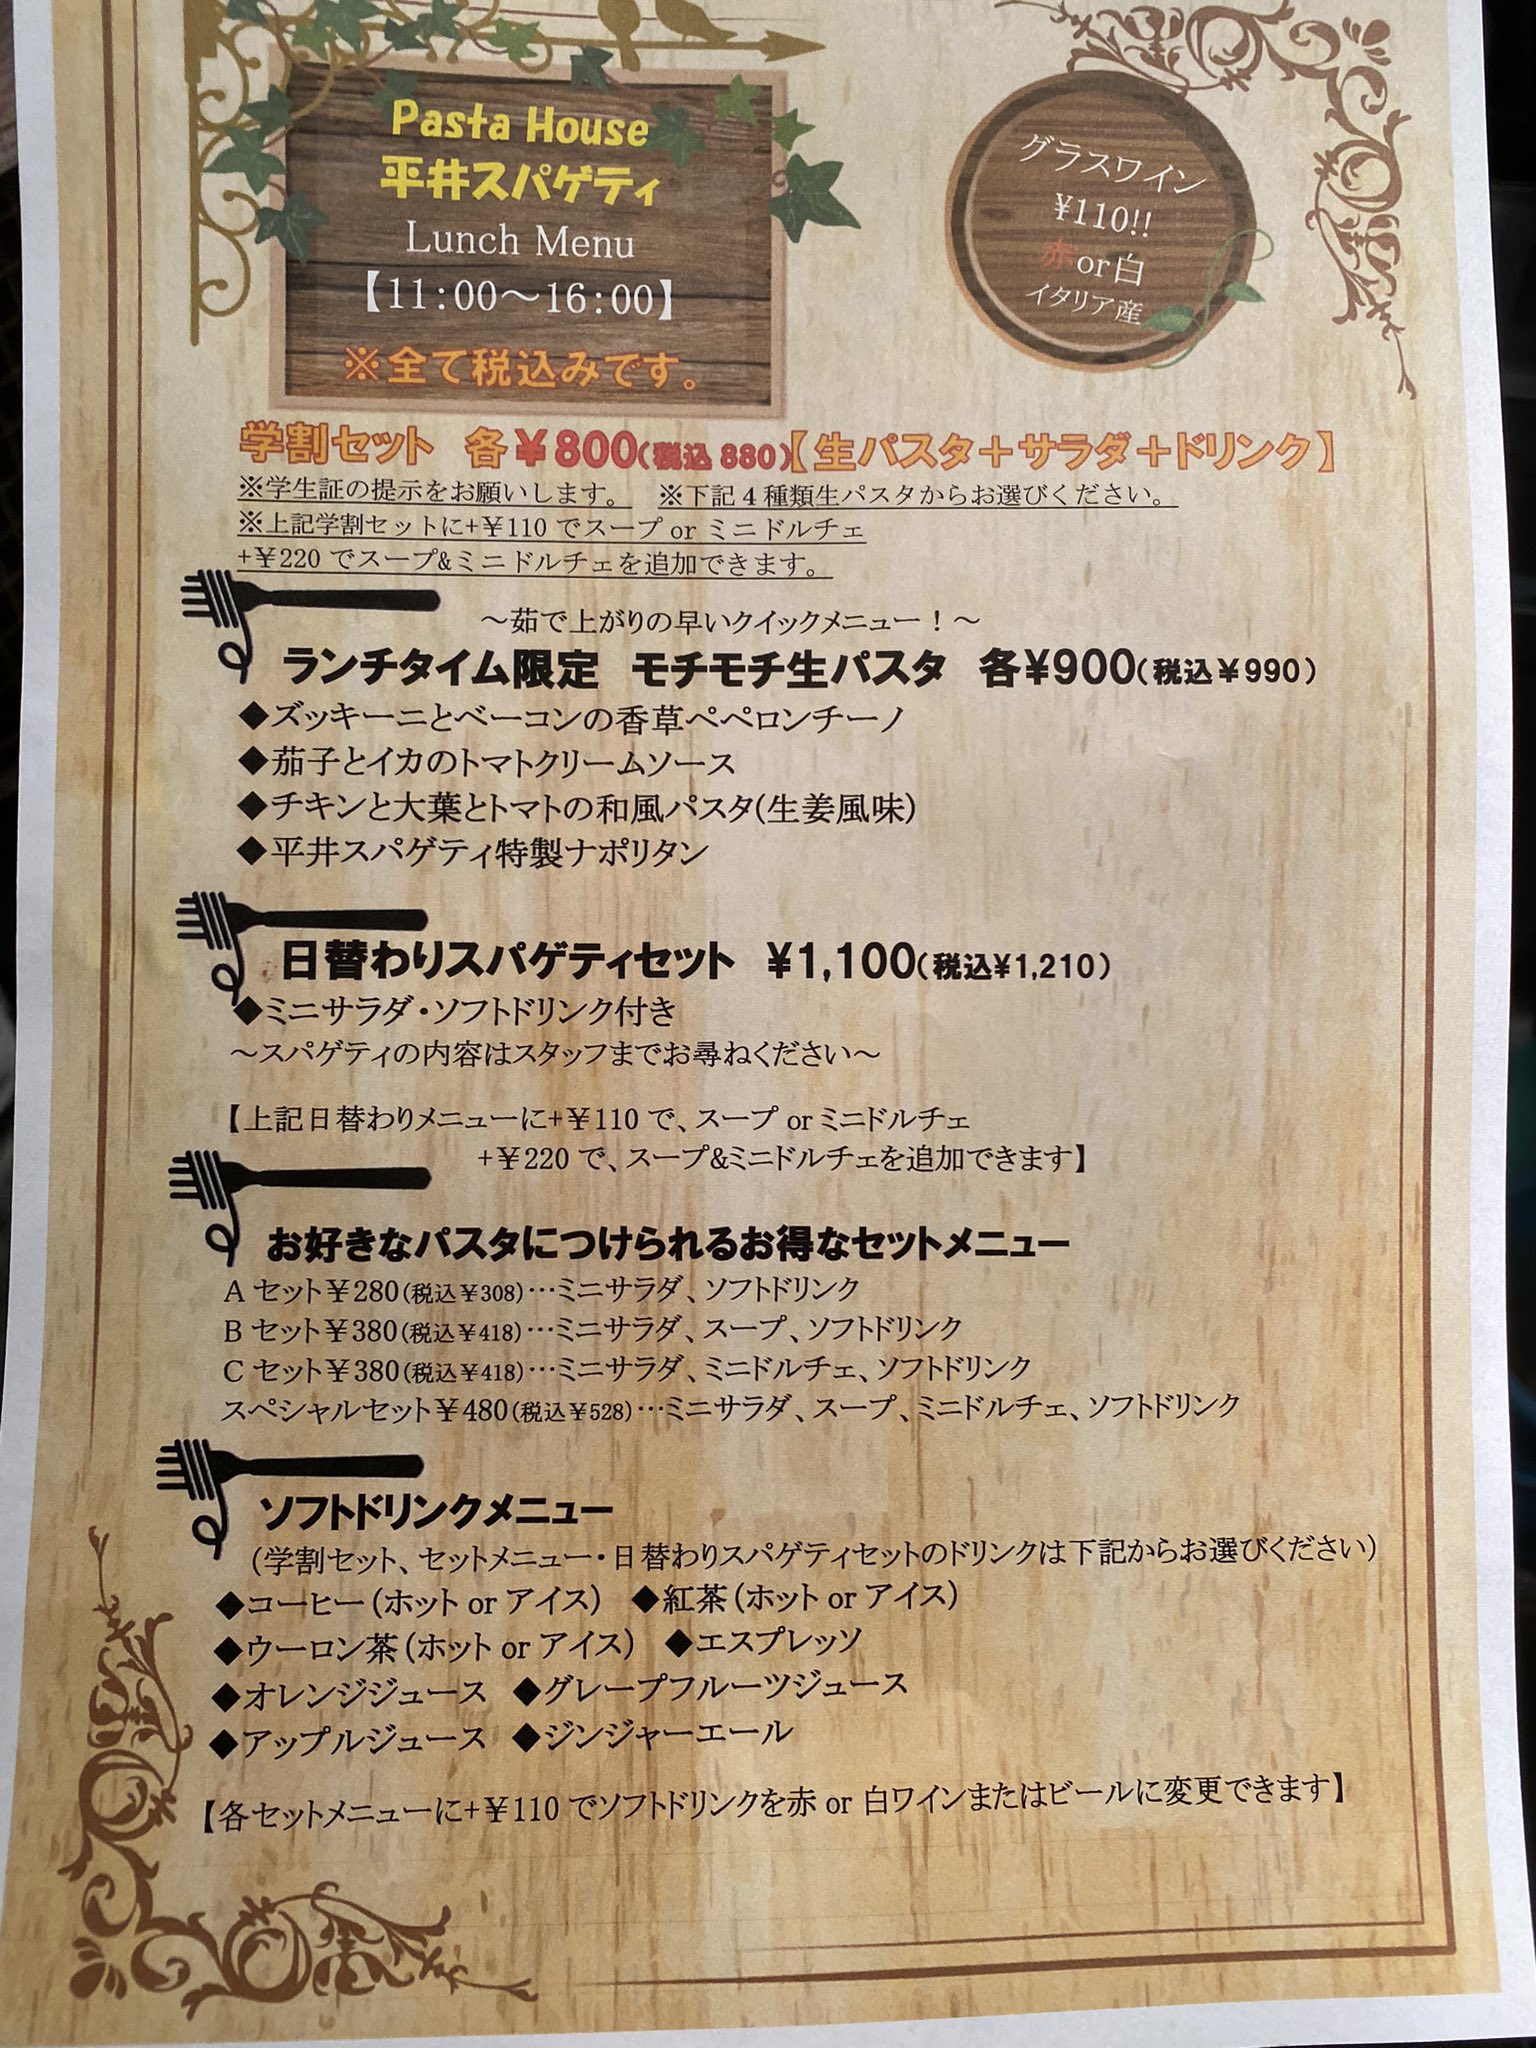 Pasta House
平井スパゲティ
Lunch Menu
【11:00～16:00】
※全て税込みです。
グラスワイン
¥110!!
赤or白
イタリア産
学割セット 各￥800(税込 880)【生パスタ＋サラダ＋ドリンク】
※学生証の提示をお願いします。 ※下記4種類生パスタからお選びください。
※上記学割セットに+￥110でスープ or ミニドルチェ
+￥220 でスープ&ミニドルチェを追加できます。
～茹で上がりの早いクイックメニュー！～
ランチタイム限定 モチモチ生パスタ 各¥900(税込￥990)
◆ズッキーニとベーコンの香草ペペロンチーノ
◆茄子とイカのトマトクリームソース
◆チキンと大葉とトマトの和風パスタ(生姜風味)
◆平井スパゲティ特製ナポリタン
日替わりスパゲティセット ¥1,100(税込¥1,210)
◆ミニサラダ・ソフトドリンク付き
～スパゲティの内容はスタッフまでお尋ねください～
【上記日替わりメニューに+￥110 で、スープ or ミニドルチェ
+￥220 で、スープ&ミニドルチェを追加できます】
お好きなパスタにつけられるお得なセットメニュー
A セット￥280(税込￥308)…ミニサラダ、ソフトドリンク
B セット￥380(税込￥418)…ミニサラダ、スープ、ソフトドリンク
C セット￥380(税込￥418)…ミニサラダ、ミニドルチェ、ソフトドリンク
スペシャルセット￥480(税込￥528)…ミニサラダ、スープ、ミニドルチェ、ソフトドリンク
ソフトドリンクメニュー
(学割セット、セットメニュー・日替わりスパゲティセットのドリンクは下記からお選びください)
◆コーヒー(ホット or アイス) ◆紅茶(ホット or アイス)
◆ウーロン茶(ホット or アイス) ◆エスプレッソ
◆オレンジジュース ◆グレープフルーツジュース
◆アップルジュース ◆ジンジャーエール
【各セットメニューに+￥110 でソフトドリンクを赤 or 白ワインまたはビールに変更できます】